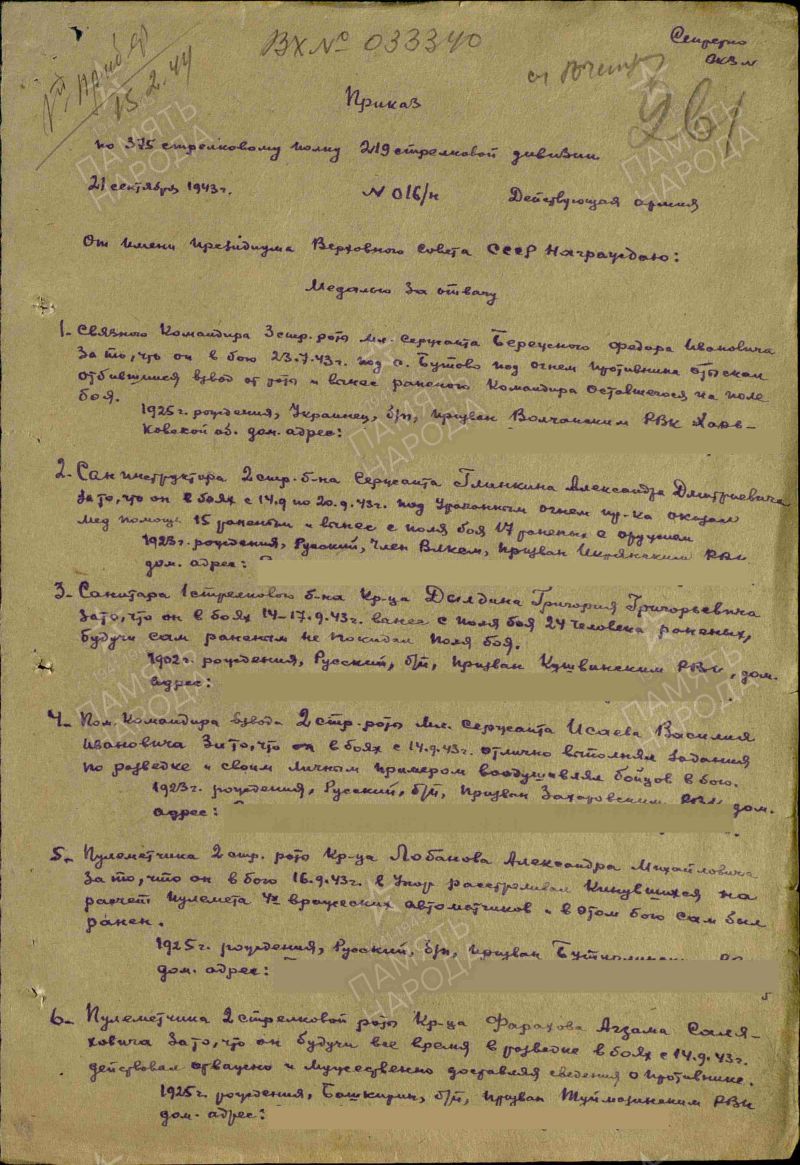 ВХ№ 033340
Секретно
15.2.44
261
Приказ
по 375 стрелковому полку 219 стрелковой дивизии
21 сентября 1943г. N 016/н Действующая армия
От имени Президиума Верховного Совета СССР Награждаю:
Медалью За отвагу
1- Связного Командира 3 стр. роты Мл. Сержанта Федора Ивановича
За то, что он в бою 23.7.43г. под Бутово под огнем противника отыскал
отбившийся взвод от роты и вынес раненого Командира оставшегося на поле
боя.
1925г. рождения, Украинец, б/п, призван Волчанским РВК Харь-
ковской об. дом. адрес:
2- Санинструктора 2 стр. б-на Сержанта Глинкина Александра Дмитриевича
За то, что он в боях с 14.9 по 20.9.43г. под ураганным огнем пр-ка оказал
мед помощь 15 раненым и вынес с поля боя 17 раненых с оружием
1923г. рождения, Русский, член ВЛКСМ, призван РВК
дом. адрес:
3- Санитара 1 стрелкового б-на Кр-ца Дылдина Григория Григорьевича
За то, что он в боях 14-17.9.43г. вынес с поля боя 24 человека раненых,
будучи сам раненым не покидал поля боя.
1902г. рождения, Русский, б/п, призван Кушвинским РВК, дом.
адрес:
4- Пом. Командира взвода 2 стр. роты Мл. Сержанта Исаева Василия
Ивановича За то, что он в боях с 14.9.43г. отлично выполнял задания
по разведке и своим личным примером воодушевлял бойцов в бою.
1923г. рождения, Русский, б/п, призван Захаровским РВК дом.
адрес:
5- Пулеметчика 2 стр. роты Кр-ца Лобанова Александра Михайловича
За то, что он в бою 16.9.43г. в упор расстреливал кинувшихся на
расчет пулемета 4х вражеских автоматчиков и в этом бою сам был
ранен.
1925г. рождения, Русский, б/п, призван
дом. адрес:
6- Пулеметчика 2 стрелковой роты Кр-ца Фарахова Агзама Саля-
ховича За то, что он будучи все время в разведке в боях с 14.9.43г.
действовал отважно и мужественно доставляя сведения о противнике.
1925г. рождения, Башкирин, б/п, призван Туймазинским РВК
дом. адрес:
ПАМЯТЬ
НАРОДА